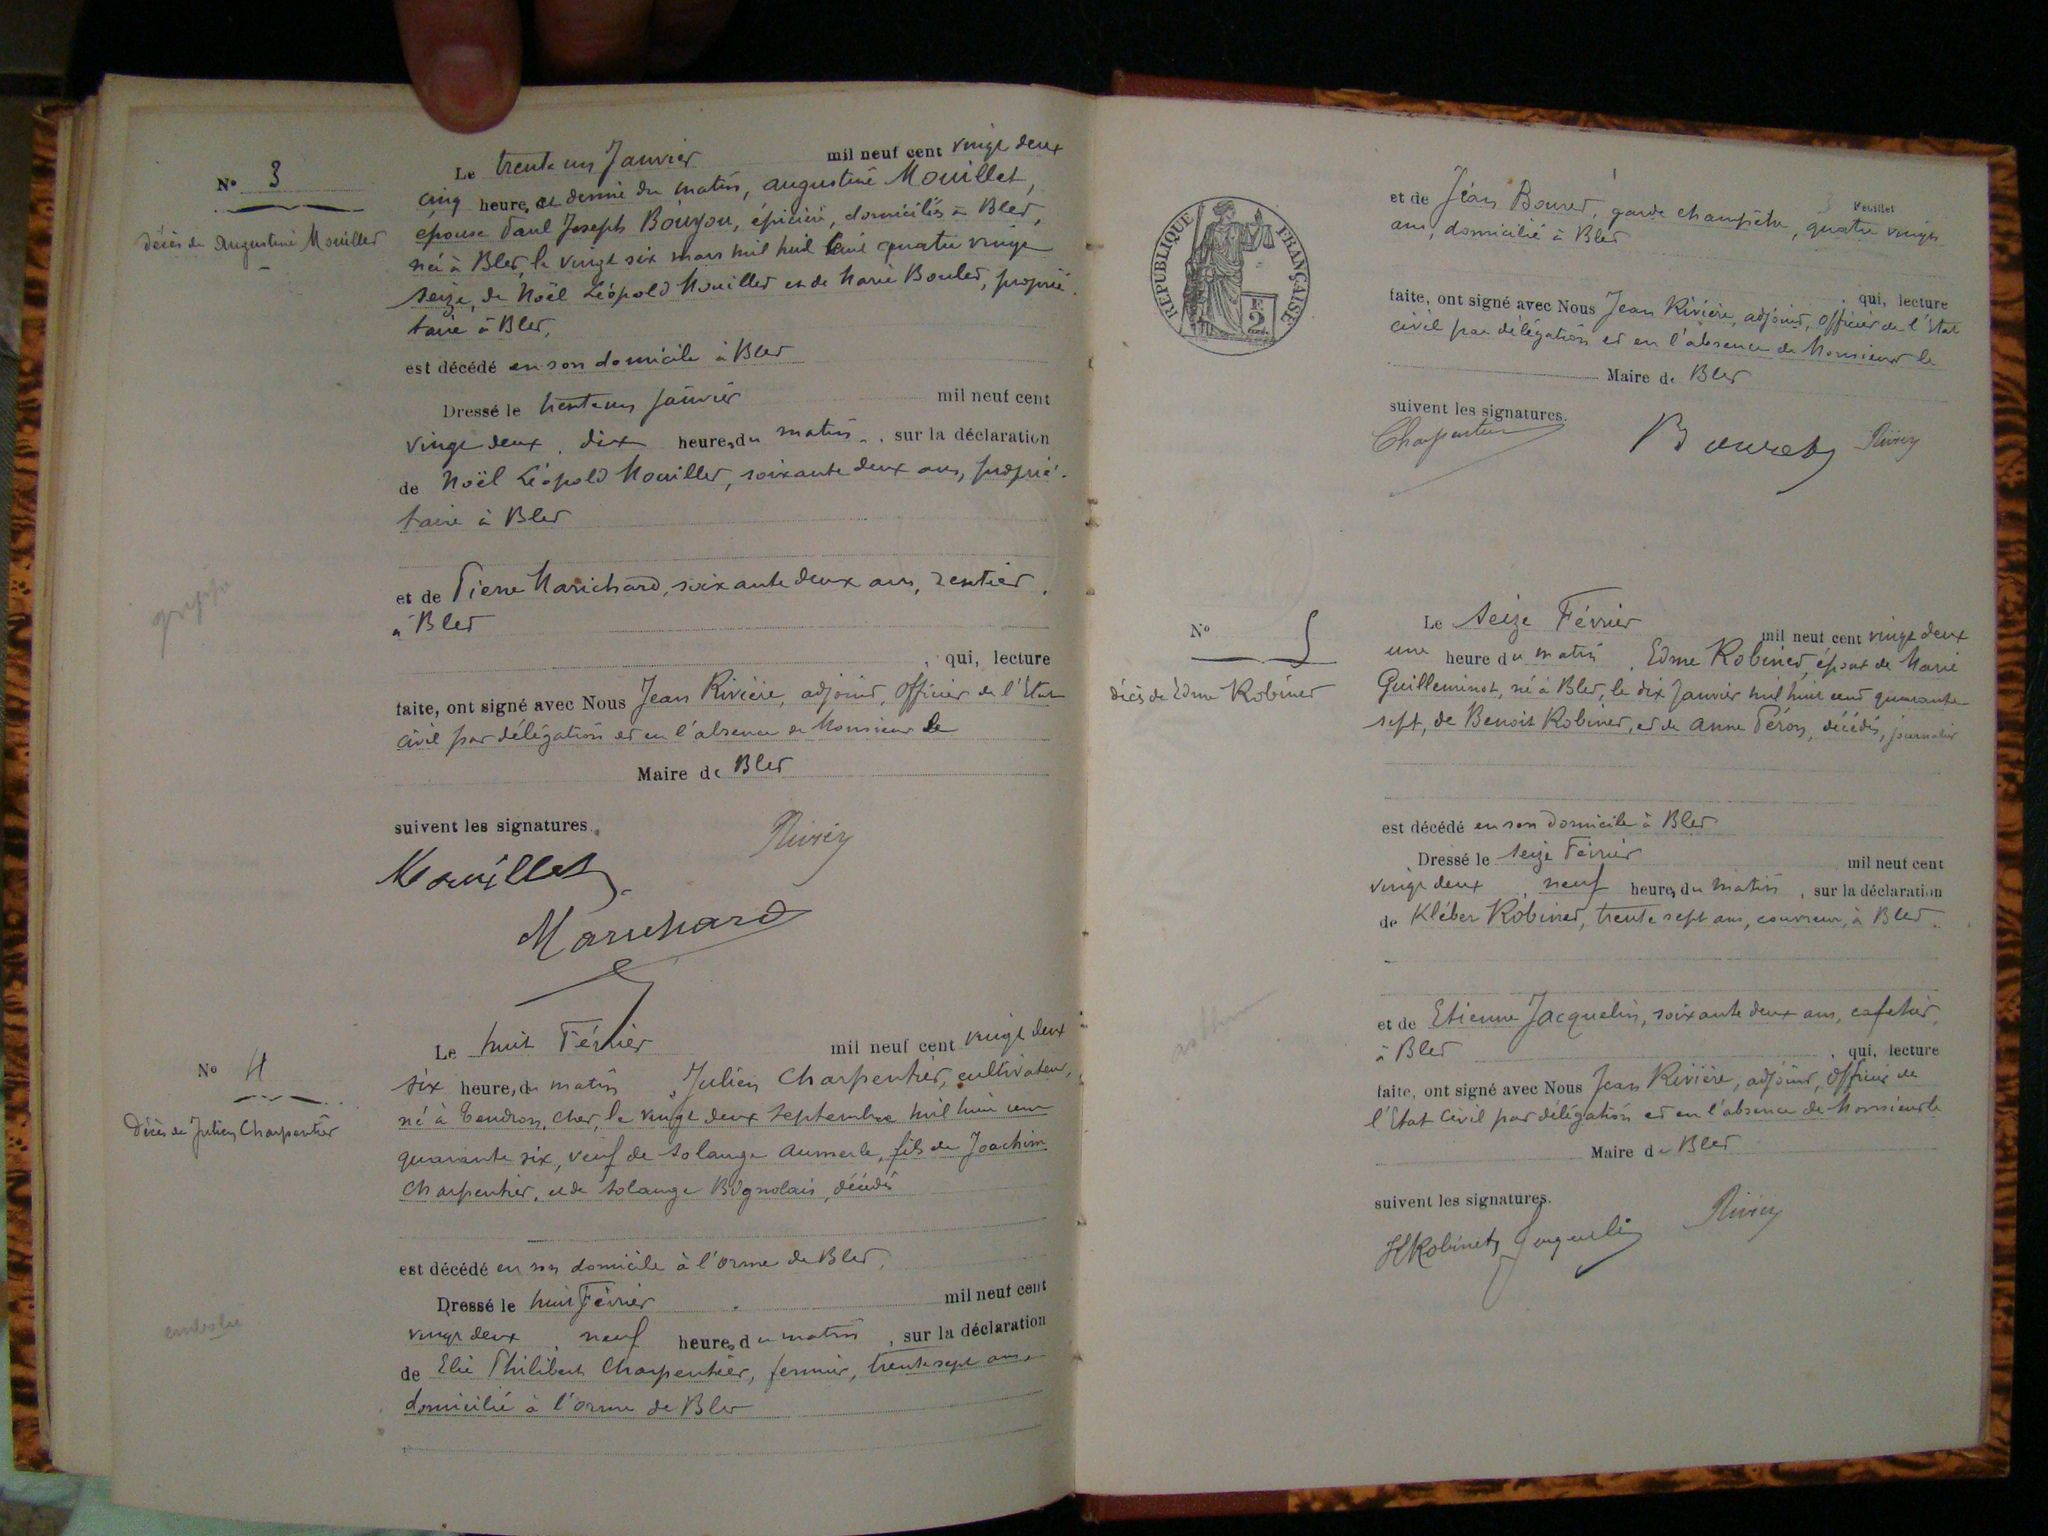 N° 3
décès de Augustine Mouillet
Le trente un Janvier mil neuf cent vingt deux
cinq heures et demie du matin, Augustine Mouillet,
épouse Paul Joseph Bouyou, épicière, domiciliés à Blet,
née à Blet, le vingt six mars mil huit cent quatre vingt
seize, de Noël Léopold Mouillet et de Marie Boulet, proprié-
taire à Blet,
est décédé en son domicile à Blet
Dressé le trente un Janvier mil neuf cent
vingt deux, dix heures du matin, sur la déclaration
de Noël Léopold Mouillet, soixante deux ans, proprié-
taire à Blet
et de Pierre Marichard, soixante deux ans, rentier,
à Blet
, qui, lecture
faite, ont signé avec Nous Jean Rivière, adjoint, officier de l'Etat
civil par délégation et en l'absence de Monsieur le
Maire de Blet
suivent les signatures.
Mouillet
Marichard
grippe
N° 4
Décès de Julien Charpentier
Le huit Février mil neuf cent vingt deux
six heures du matin, Julien Charpentier, cultivateur,
né à Tendron, Cher, le vingt deux septembre mil huit cent
quarante six, veuf de Solange Aumerle, fils de Joachim
Charpentier, et de Solange Bognolais, décédés
est décédé en son domicile à l'orme de Blet,
Dressé le huit Février mil neuf cent
vingt deux, neuf heures du matin, sur la déclaration
de Elie Philibert Charpentier, fermier, trente sept ans,
domicilié à l'orme de Blet
RÉPUBLIQUE FRANÇAISE
2
Feuillet
et de Jean Bouret, garde champêtre, quatre vingts
ans, domicilié à Blet
, qui, lecture
faite, ont signé avec Nous Jean Rivière, adjoint, officier de l'Etat
civil par délégation et en l'absence de Monsieur le
Maire de Blet
suivent les signatures.
Charpentier Bouret
N° 5
décès de Edme Robinet
Le seize Février mil neuf cent vingt deux
une heure du matin, Edme Robinet, époux de Marie
Guilleminot, né à Blet, le dix Janvier mil huit cent quarante
sept, de Benoit Robinet, et de Anne Péron, décédés, journalier
est décédé en son domicile à Blet
Dressé le seize Février mil neuf cent
vingt deux, neuf heures du matin, sur la déclaration
de Kléber Robinet, trente sept ans, couvreur, à Blet.
et de Etienne Jacquelin, soixante deux ans, cafetier,
à Blet, qui, lecture
faite, ont signé avec Nous Jean Rivière, adjoint, officier de
l'Etat Civil par délégation et en l'absence de Monsieur le
Maire de Blet
suivent les signatures.
KRobinet Jacquelin